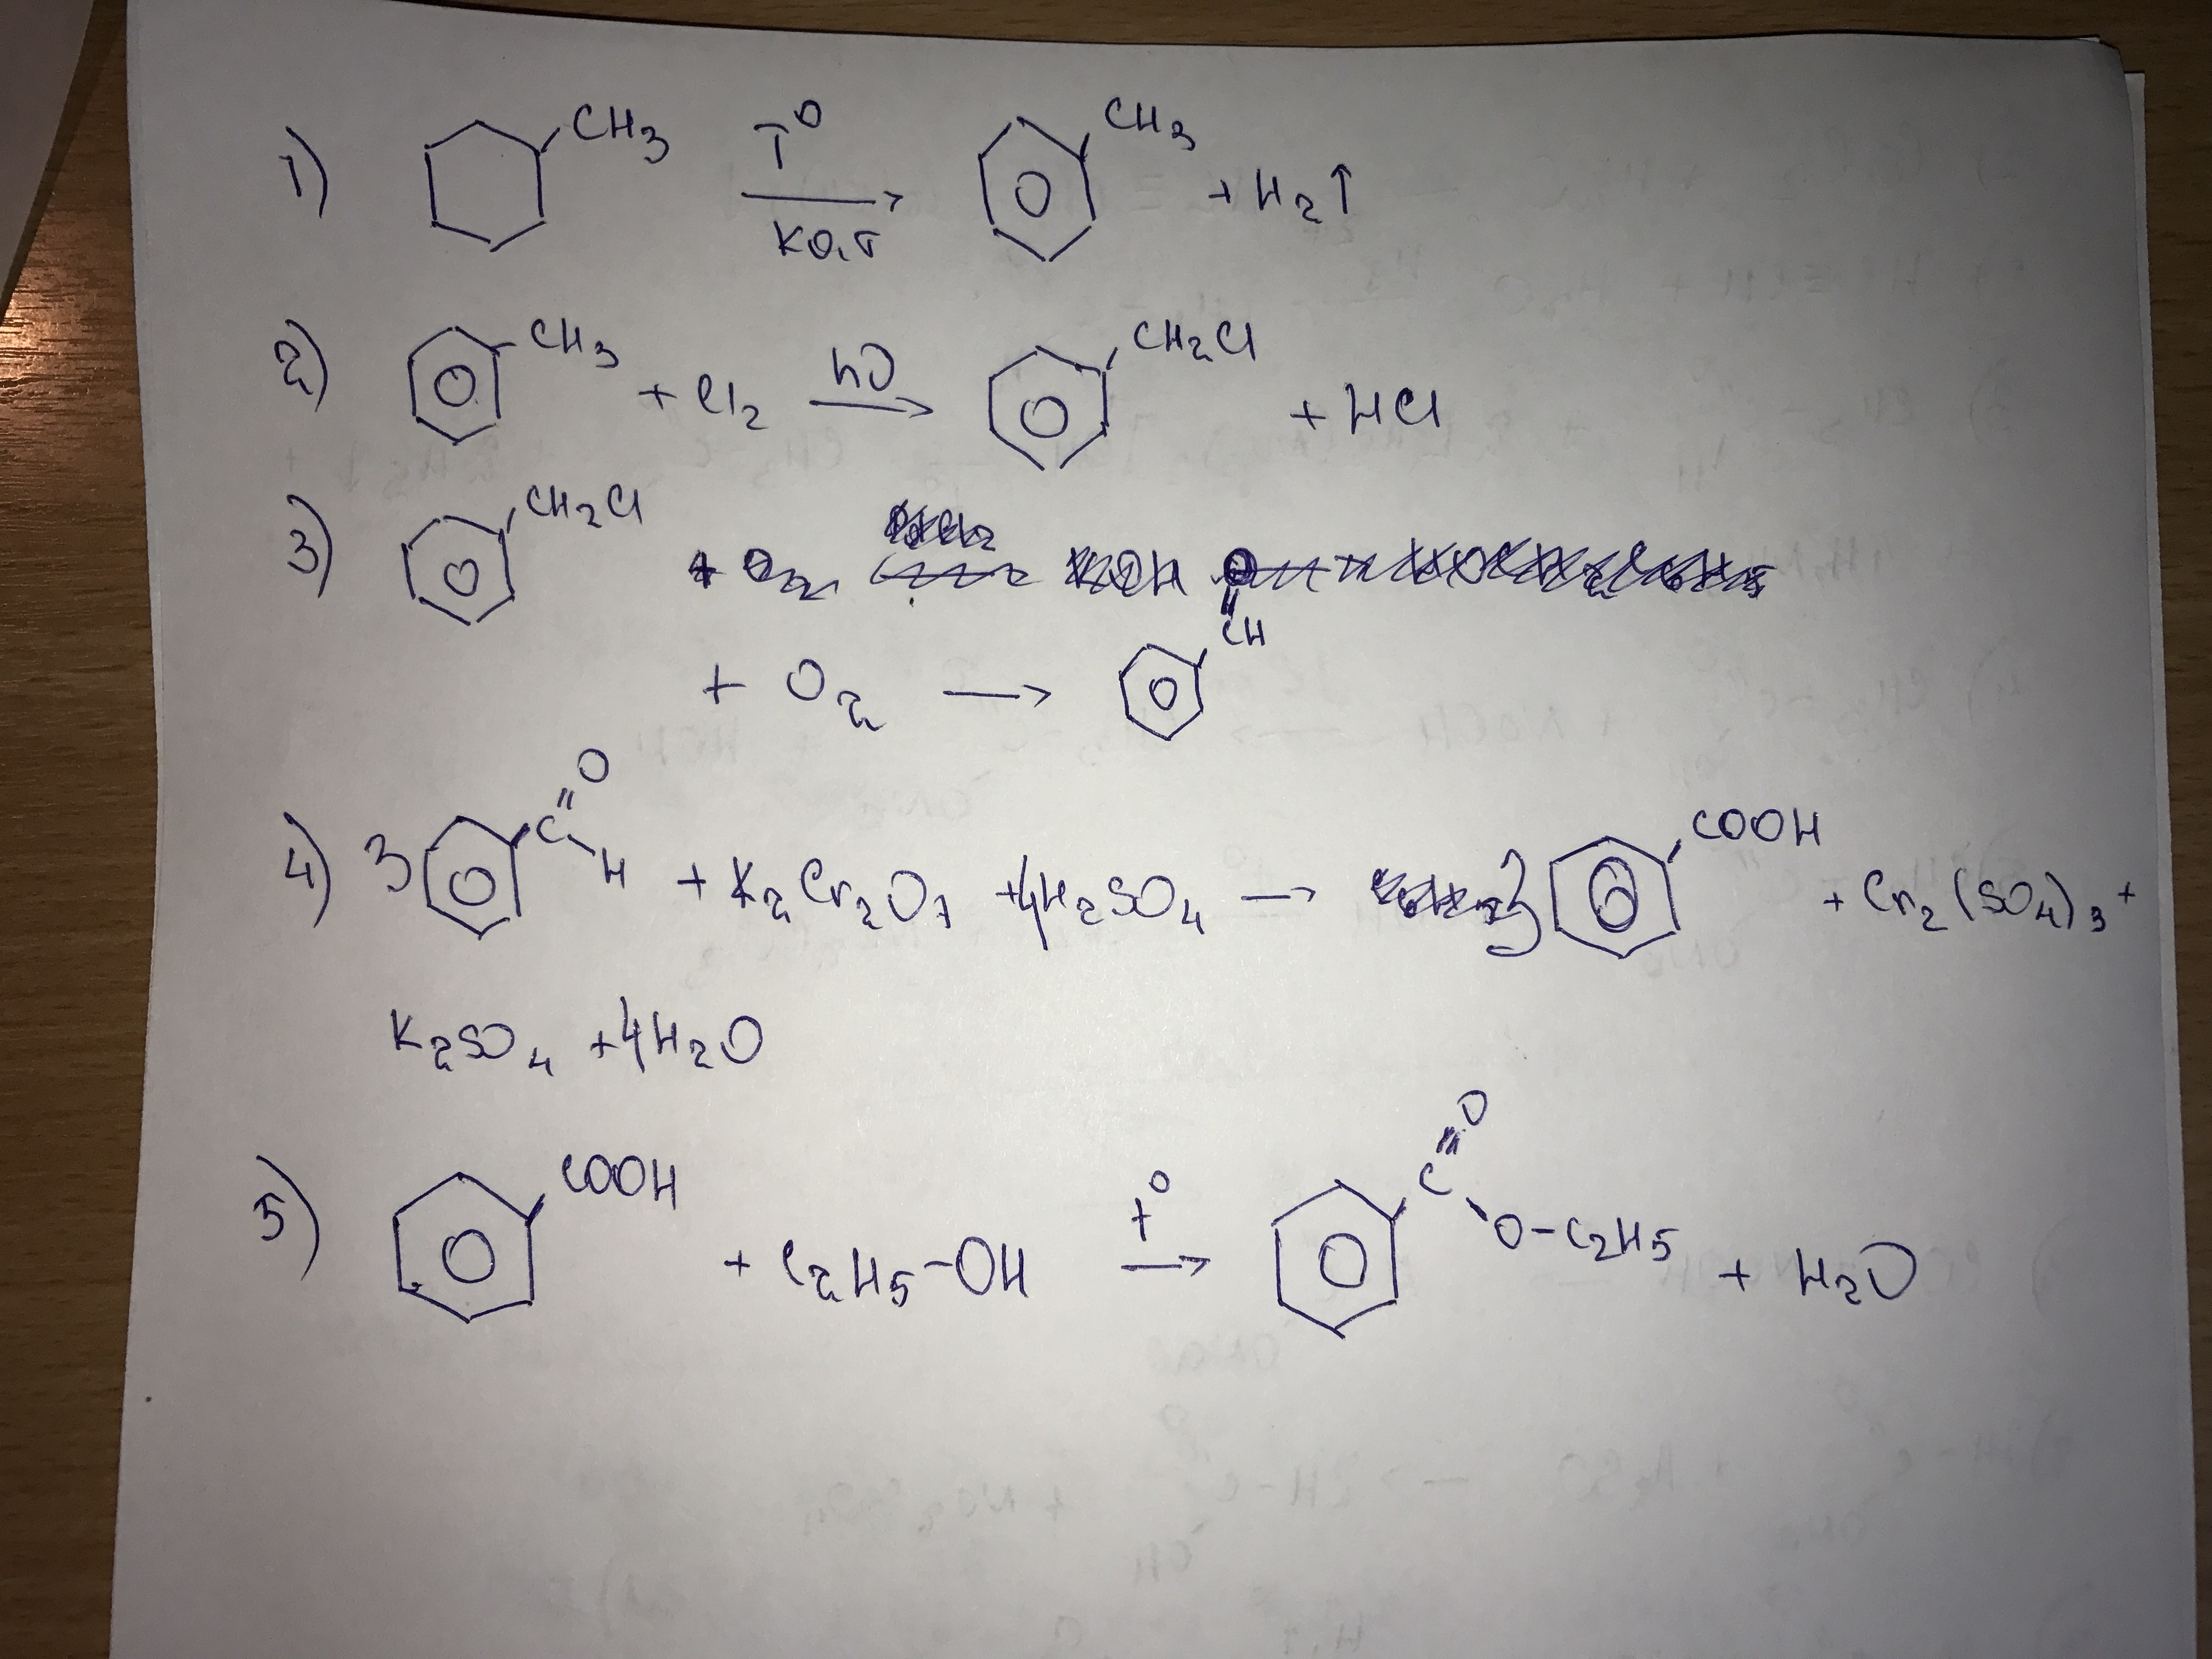 1) CH3 T° CH3 + H2↑
кат
2) CH3 + Cl2 hυ CH2Cl + HCl
3) CH2Cl
O
CH
+ O2 →
4) 3 C=O H + K2Cr2O7 + 4H2SO4 → 3 COOH + Cr2(SO4)3 +
K2SO4 + 4H2O
5) COOH + C2H5-OH t° → C=O O-C2H5 + H2O